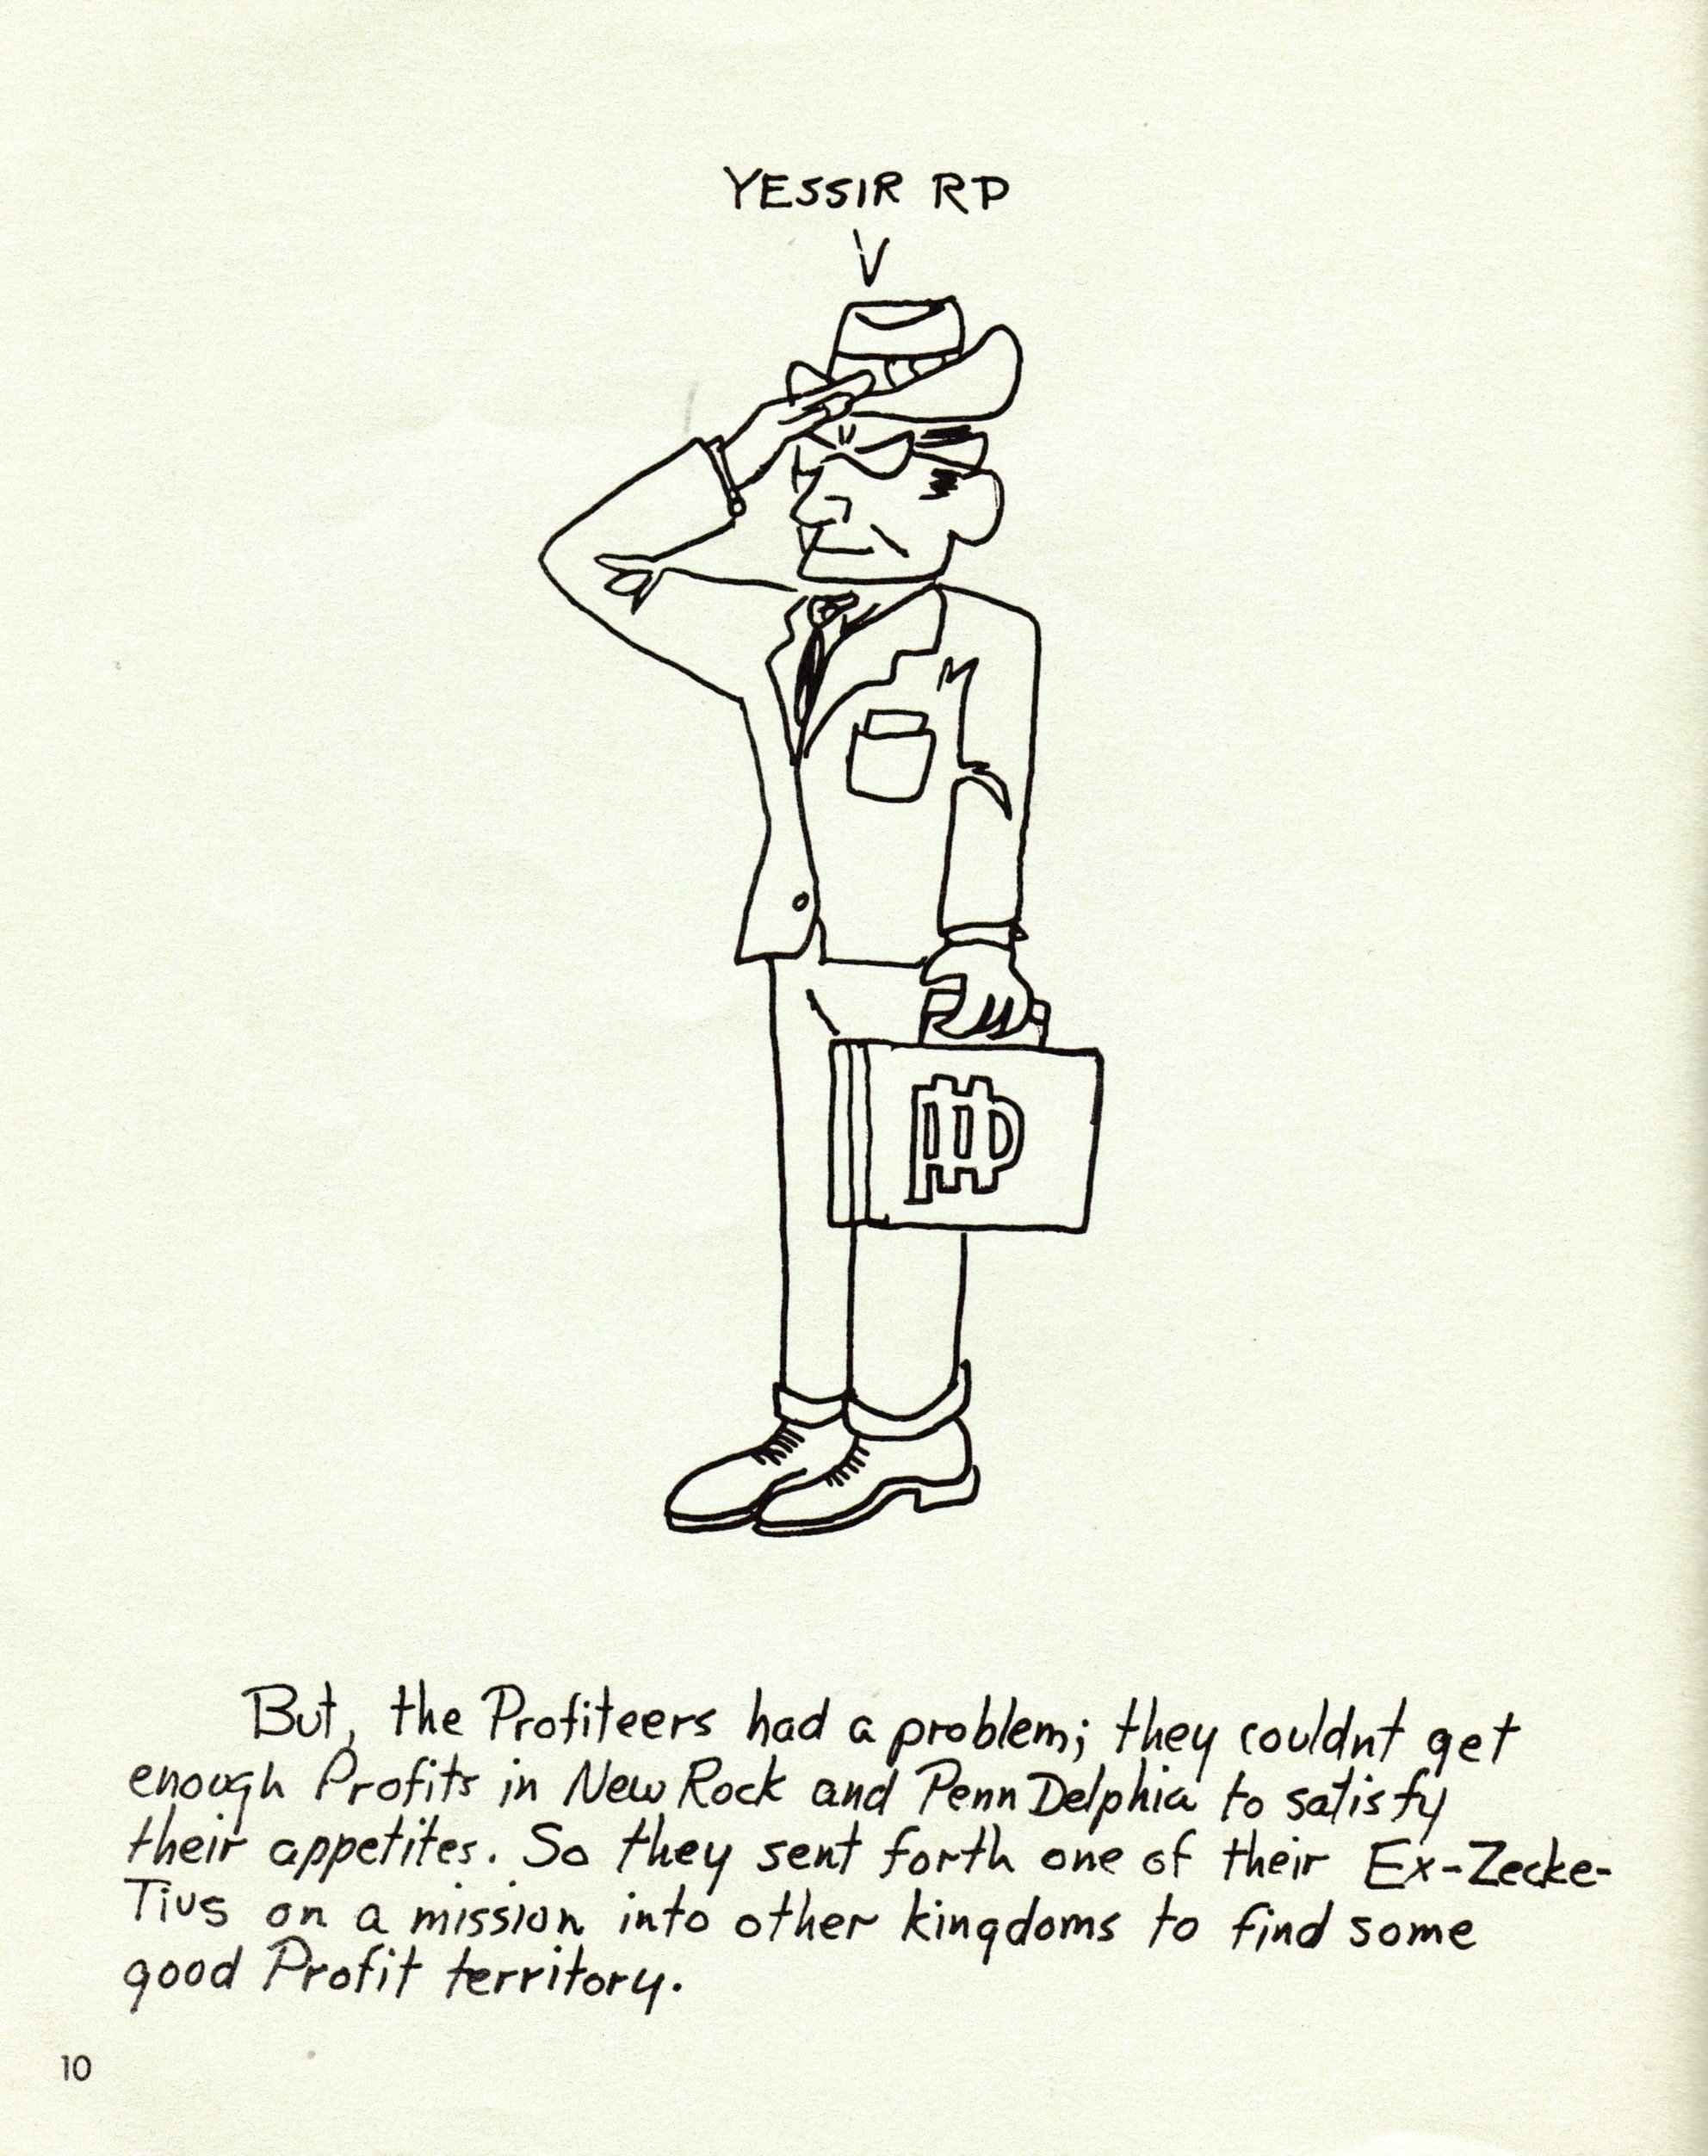 YESSIR RP
But, the Profiteers had a problem; they couldnt get
enough Profits in New Rock and Penn Delphia to satisfy
their appetites. So they sent forth one of their Ex-Zecke-
Tius on a mission into other kingdoms to find some
good Profit territory.
10